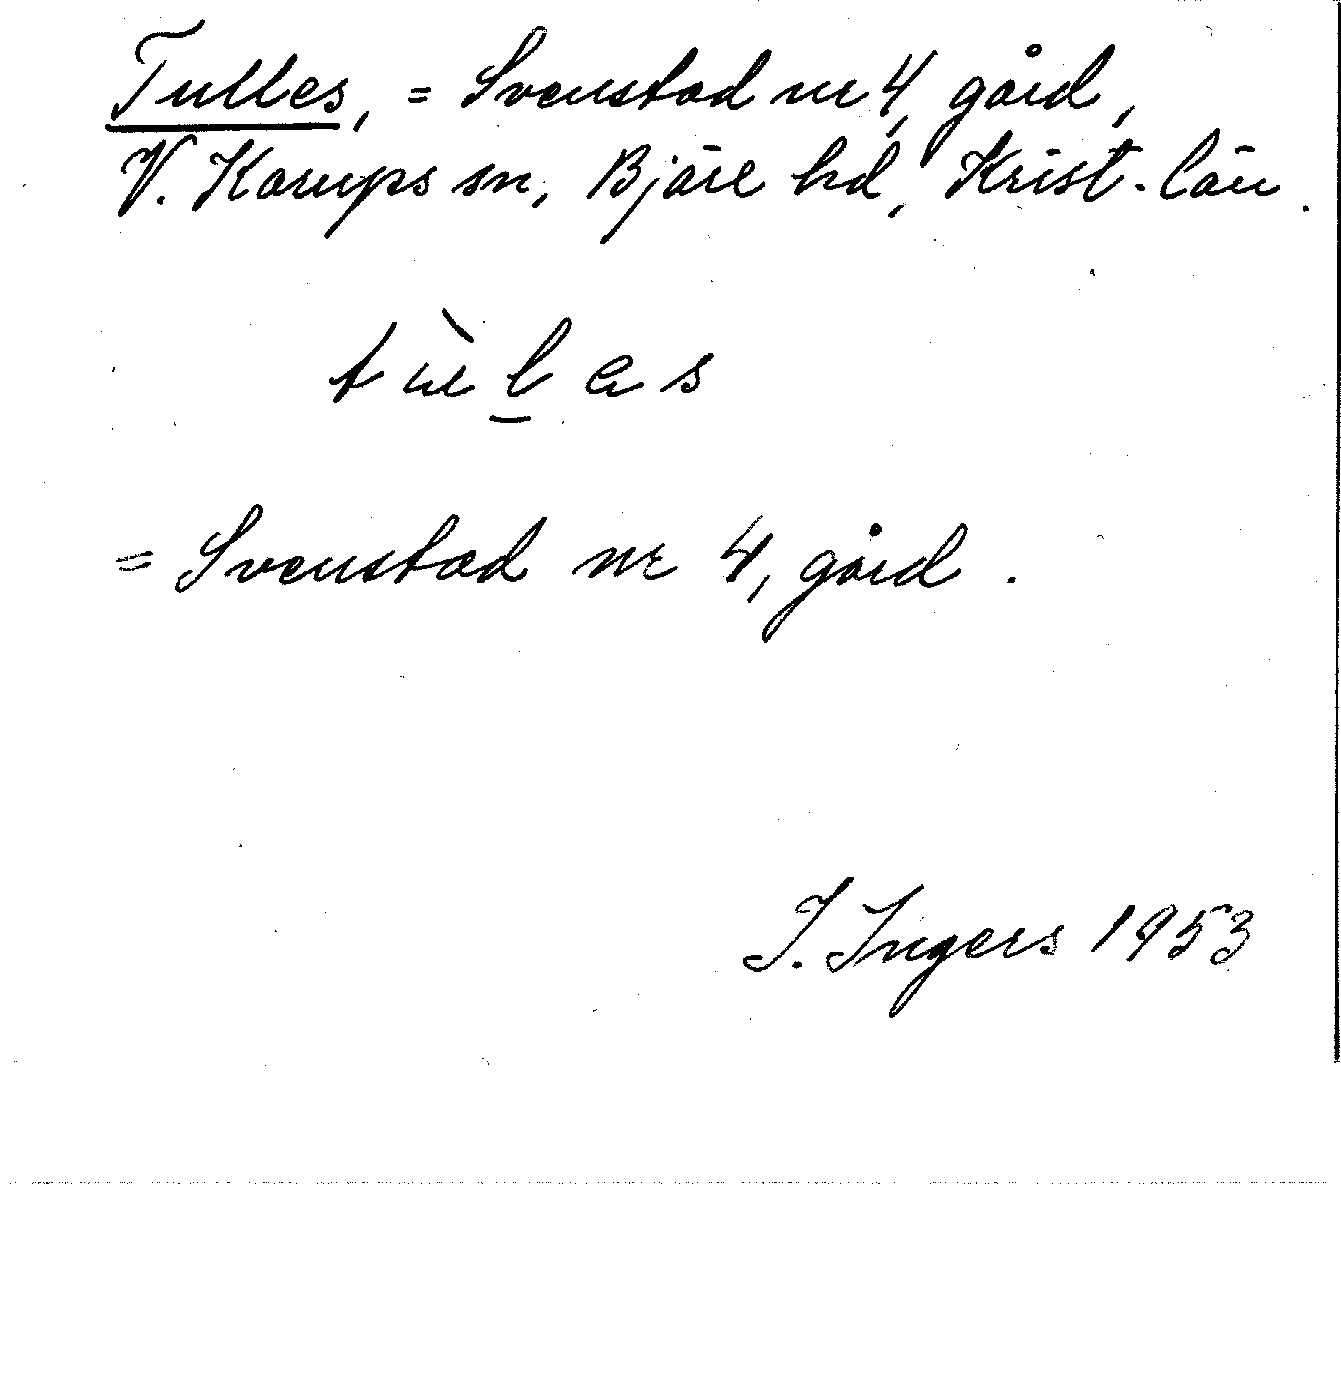 Tulles, = Svenstad nr 4, gård,
V. Karups sn, Bjäre hd, Krist. län.
tùl̠as
= Svenstad nr 4, gård.
I. Ingers 1953